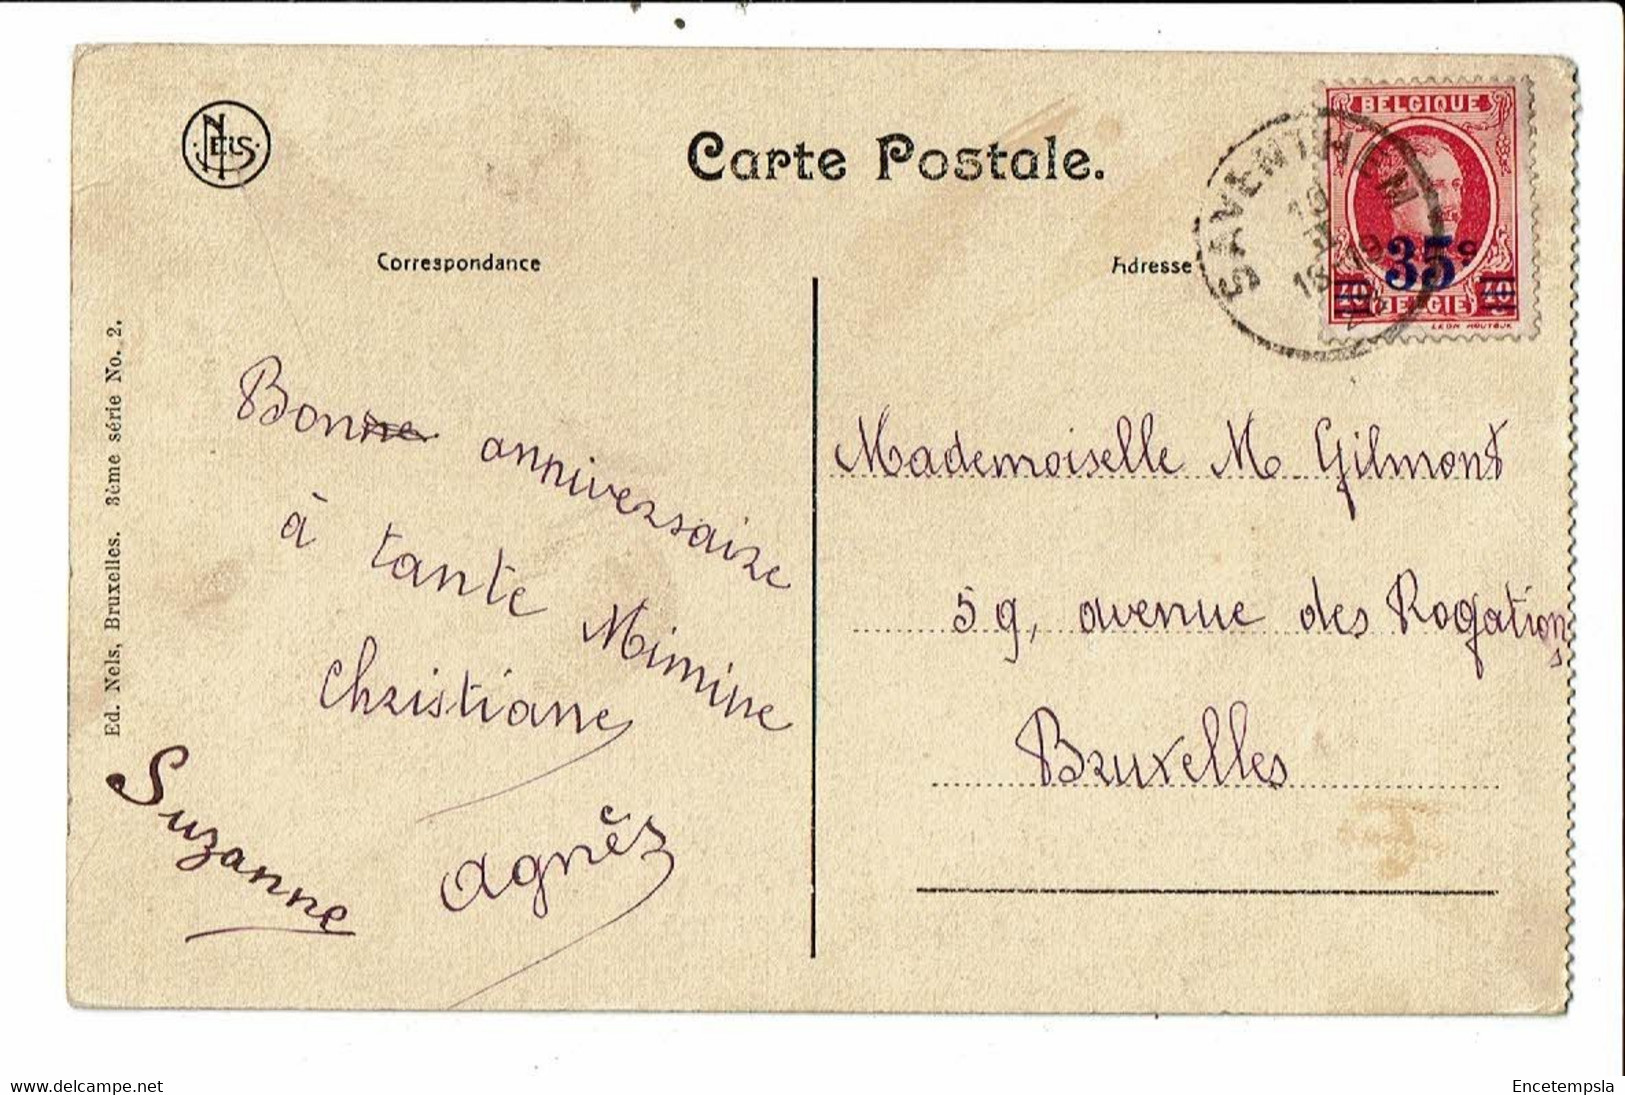 NELS
Carte Postale.
Correspondance
Adresse
SAVENTHEM
18-19
BELGIQUE
35c
40 BELGIE 40
Ed. Nels, Bruxelles. 3ème série No. 2.
Bonne anniversaire
à tante Mimine
Christiane
Suzanne
Agnès
Mademoiselle M. Gilmont
59, avenue des Rogations
Bruxelles
www.delcampe.net
Encetempsla